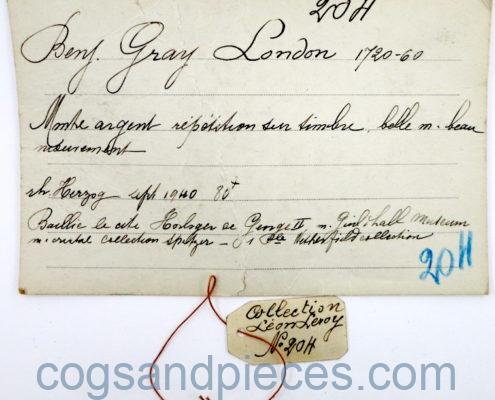 204
Benj. Gray London 1720-60
Montre argent répétition sur timbre, belle m. beau
mouvement
ch. Herzog sept 1940 80+
Baillie le cite Horloger de George II m. Guildhall Museum
m. cristal collection Spitzer - collection
204
Collection
Léon Leroy
No 204
cogsandpieces.com